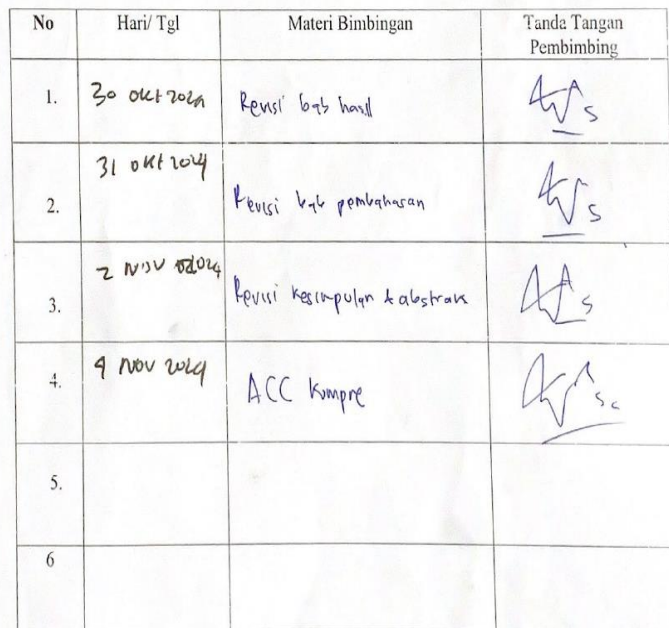 No Hari/ Tgl Materi Bimbingan Tanda Tangan
Pembimbing
1. 30 okt 2024 Revisi bab hasil
2. 31 okt 2024 Revisi bab pembahasan
3. 2 Nov 2024 Revisi kesimpulan & abstrak
4. 4 Nov 2024 ACC kompre
5.
6